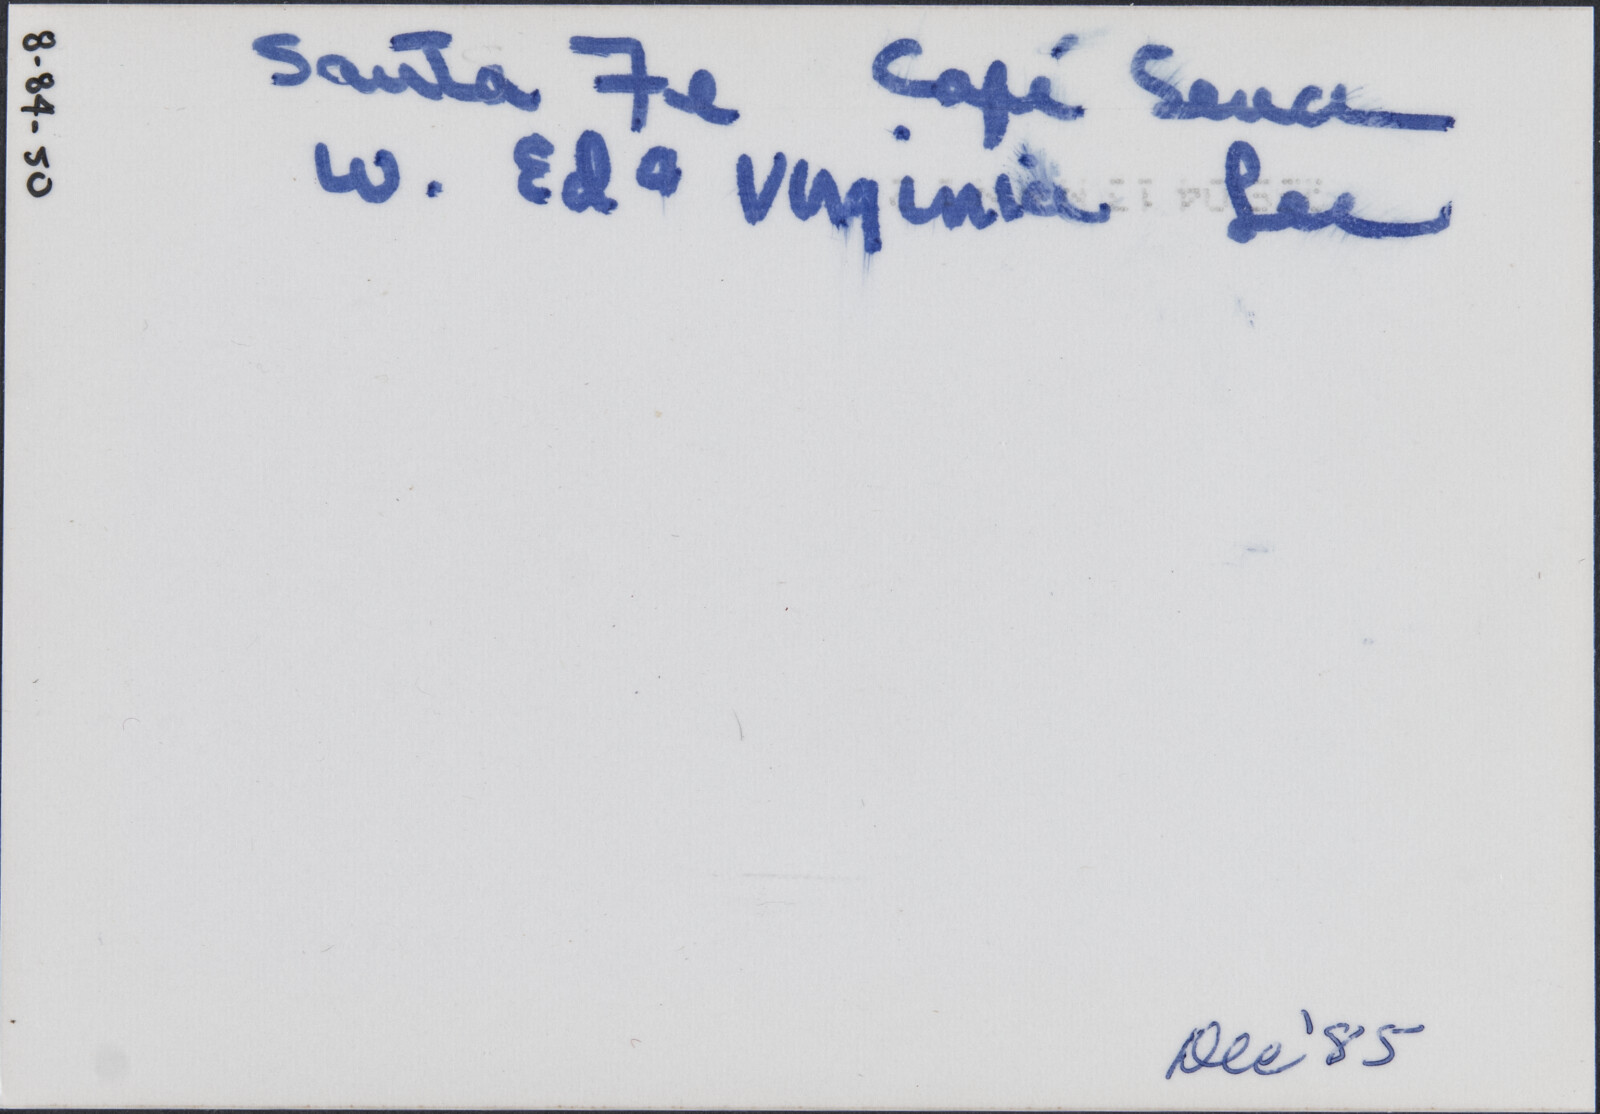 8-84-50
Santa Fe Café Sena
W. Ed & Virginia Lee
Dec '85